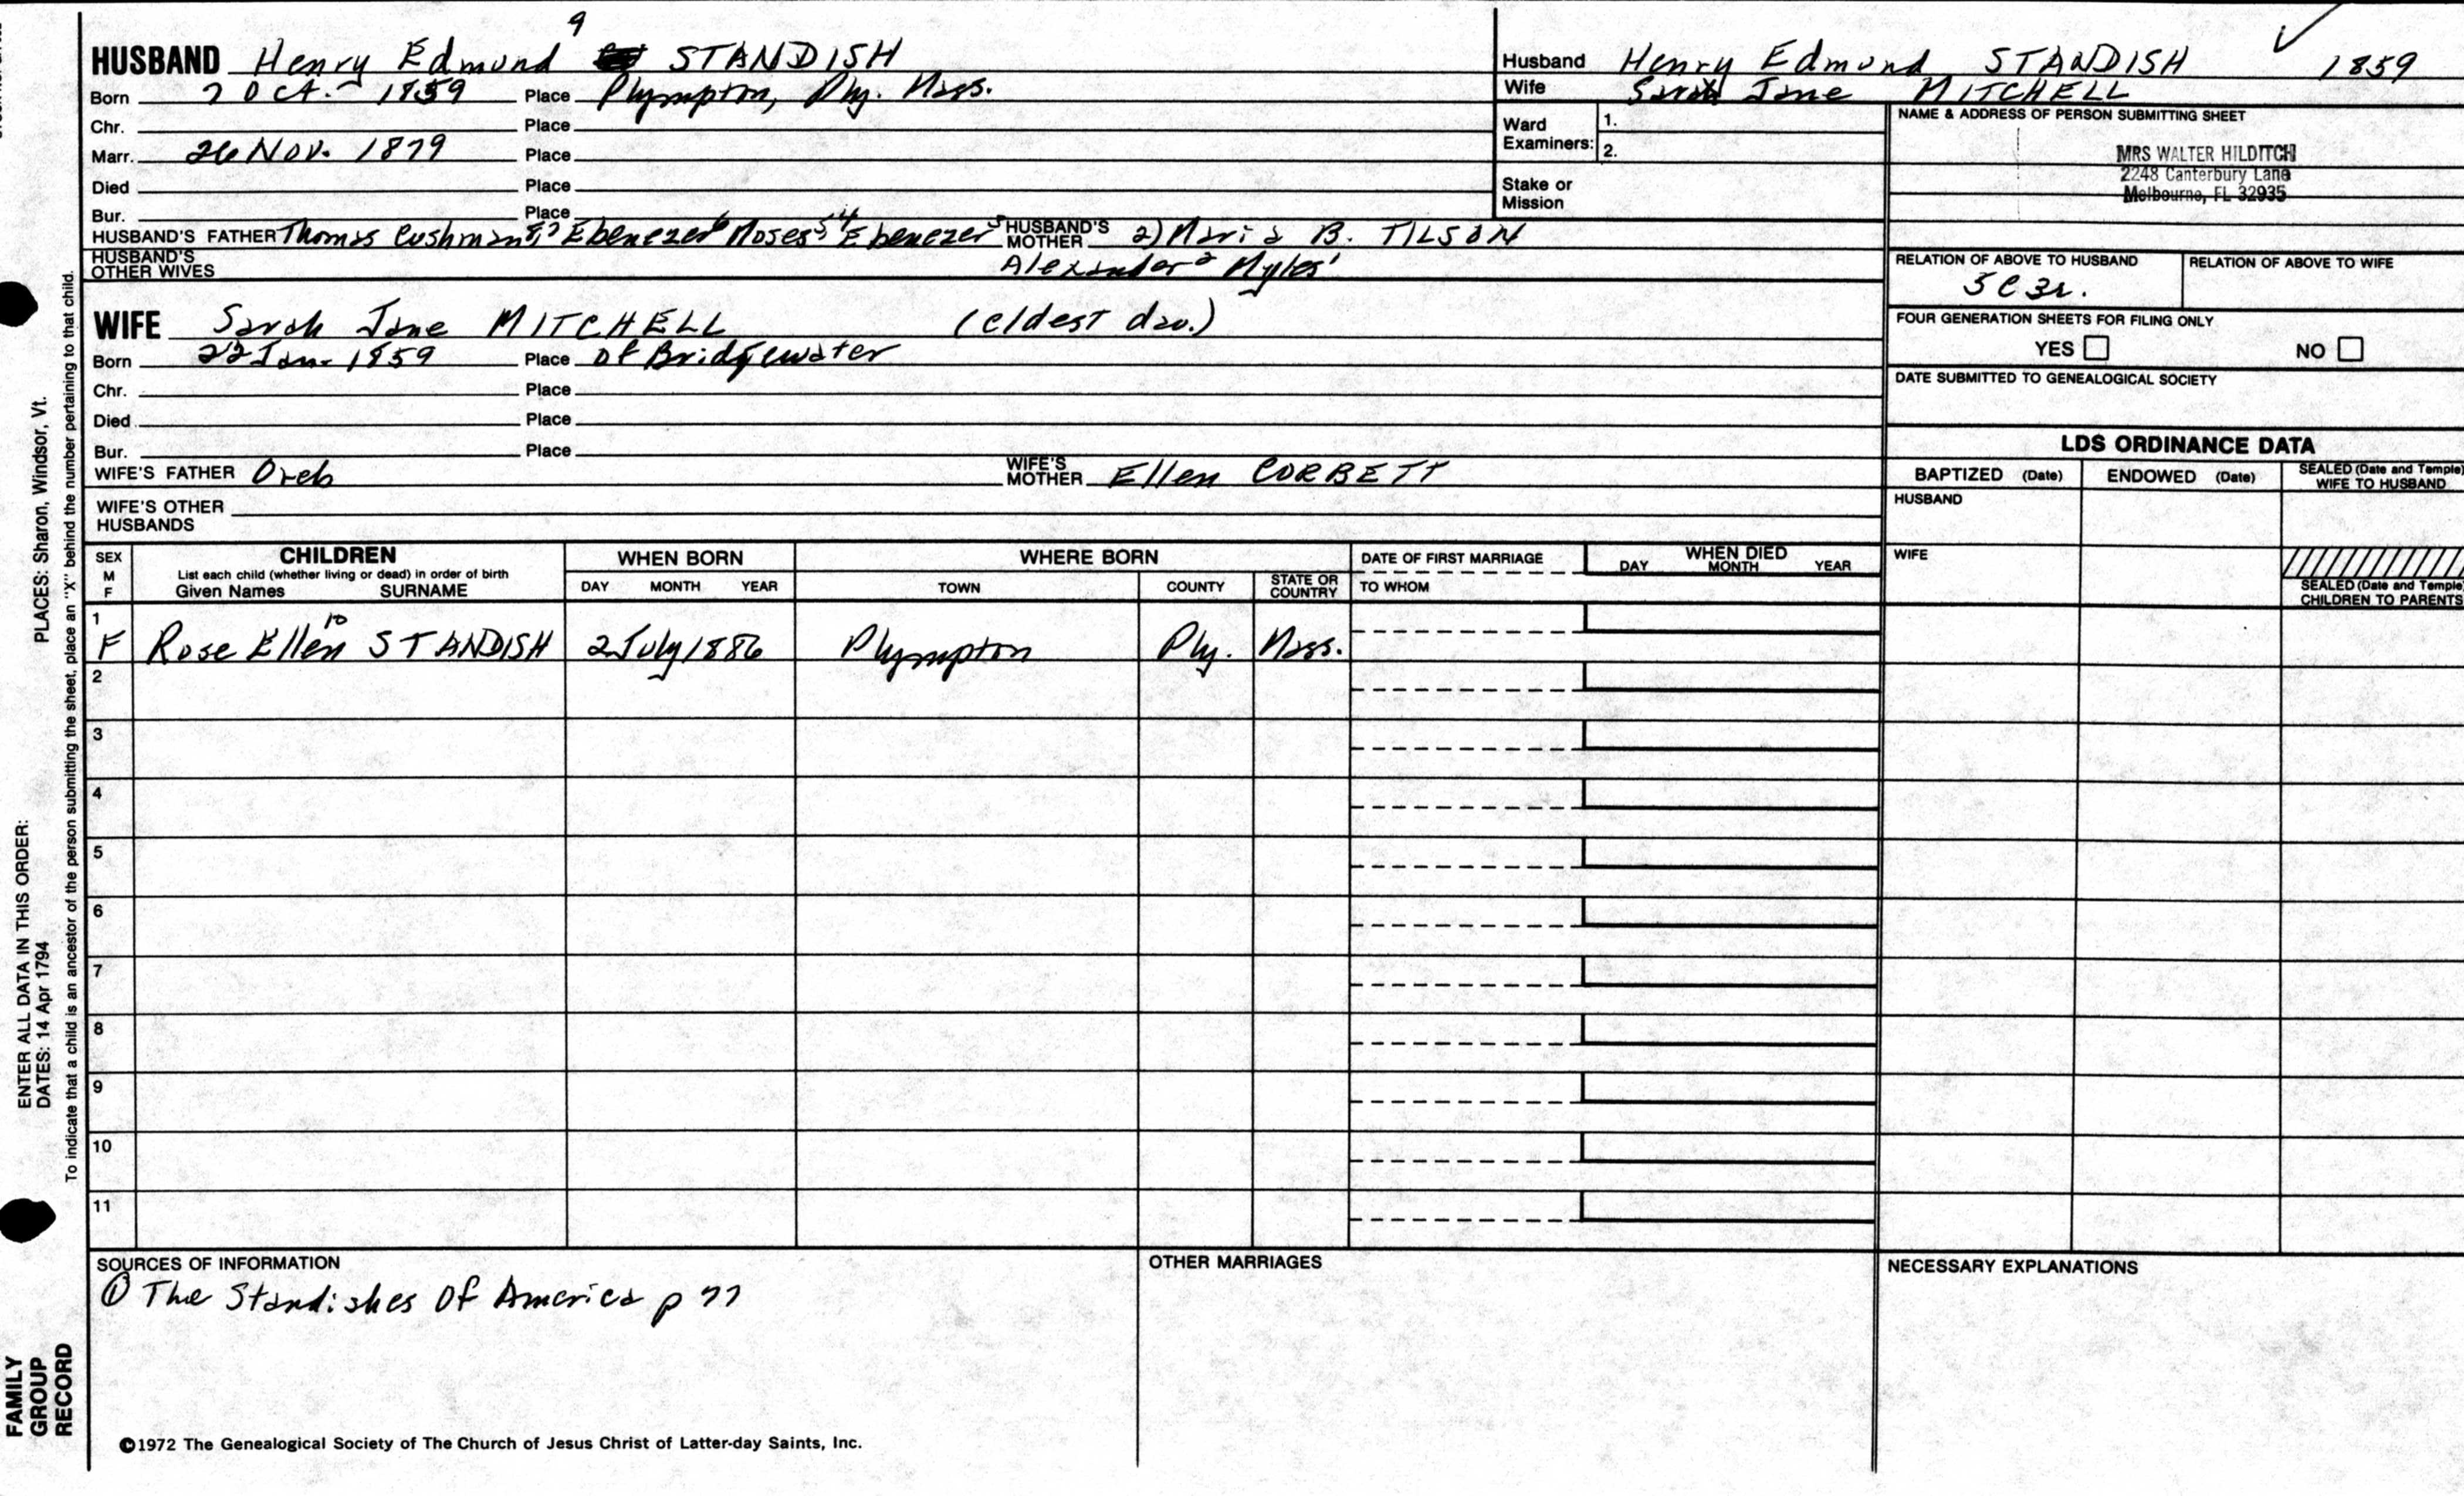 HUSBAND Henry Edmund 9 STANDISH
Born 7 Oct. 1859 Place Plympton, Ply. Mass.
Chr. Place
Marr. 26 Nov. 1879 Place
Died Place
Bur. Place
HUSBAND'S FATHER Thomas Cushman Ebenezer Moses Ebenezer HUSBAND'S MOTHER 2) Maria B. TILSON
HUSBAND'S OTHER WIVES Alexander 2 Myles 1
WIFE Sarah Jane MITCHELL (eldest dau.)
Born 22 Jan. 1859 Place Of Bridgewater
Chr. Place
Died Place
Bur. Place
WIFE'S FATHER Oreb WIFE'S MOTHER Ellen CORBETT
WIFE'S OTHER HUSBANDS
Husband Henry Edmund STANDISH 1859
Wife Sarah Jane MITCHELL
Ward Examiners: 1.
2.
Stake or Mission
NAME & ADDRESS OF PERSON SUBMITTING SHEET
MRS WALTER HILDITCH
2248 Canterbury Lane
Melbourne, FL 32935
RELATION OF ABOVE TO HUSBAND RELATION OF ABOVE TO WIFE
5C3r.
FOUR GENERATION SHEETS FOR FILING ONLY
YES NO
DATE SUBMITTED TO GENEALOGICAL SOCIETY
LDS ORDINANCE DATA
BAPTIZED (Date) ENDOWED (Date) SEALED (Date and Temple) WIFE TO HUSBAND
HUSBAND
WIFE
SEALED (Date and Temple) CHILDREN TO PARENTS
SEX M F CHILDREN WHEN BORN WHERE BORN DATE OF FIRST MARRIAGE WHEN DIED
List each child (whether living or dead) in order of birth
Given Names SURNAME DAY MONTH YEAR TOWN COUNTY STATE OR COUNTRY TO WHOM DAY MONTH YEAR
1 F Rose Ellen 10 STANDISH 2 July 1886 Plympton Ply. Mass.
2
3
4
5
6
7
8
9
10
11
SOURCES OF INFORMATION
① The Standishes Of America p 77
OTHER MARRIAGES
NECESSARY EXPLANATIONS
©1972 The Genealogical Society of The Church of Jesus Christ of Latter-day Saints, Inc.
FAMILY GROUP RECORD
ENTER ALL DATA IN THIS ORDER:
DATES: 14 Apr 1794 PLACES: Sharon, Windsor, Vt.
To indicate that a child is an ancestor of the person submitting the sheet, place an "X" behind the number pertaining to that child.